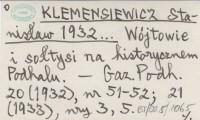 KLEMENSIEWICZ Sta-
nisław 1932... Wójtowie
i sołtysi na historycznem
Podhalu. — Gaz. Podh.
20 (1932), nr 51-52; 21
(1933), nry 3, 5.